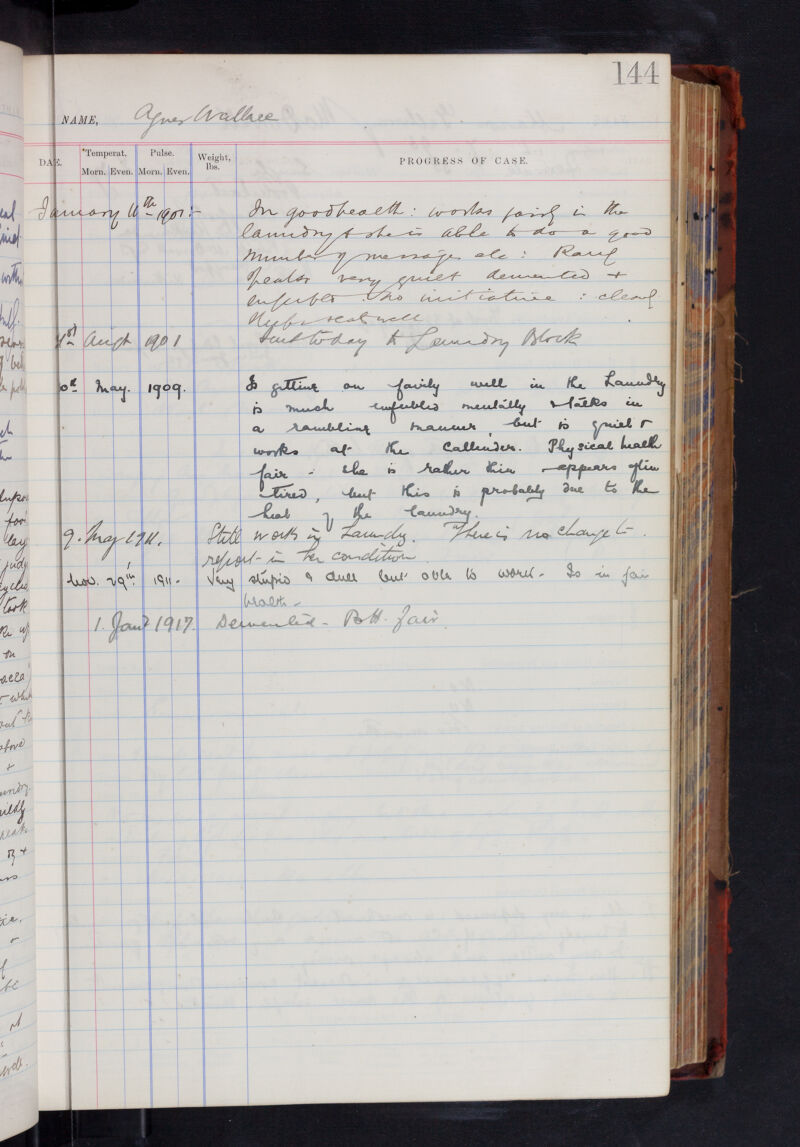 144
NAME, Agnes Wallace
DATE. *Temperat. Pulse. Weight, lbs. PROGRESS OF CASE.
Morn. Even. Morn. Even.
January 16th 1901:- In good health: works fairly in the
laundry & she is able to do a good
number of messages etc: Rarely
speaks very quiet demented +
enfeebled: no initiative: cleanly
Sleeps & eats well
1st Augt 1901 Sent today to Laundry Block
0th May. 1909. Is getting on fairly well in the Laundry
is much enfeebled mentally & talks in
a rambling manner, but is quiet &
works at the Callender. Physical health
fair - she is rather thin - appears often
tired, but this is probably due to the
heat of the laundry.
9. May 1911. Still works in Laundry. There is no change to
report in her condition
Nov. 29th. 1911. Very stupid & dull but able to work. Is in fair
health.
1. Jany 1917. Demented - B.H. fair.